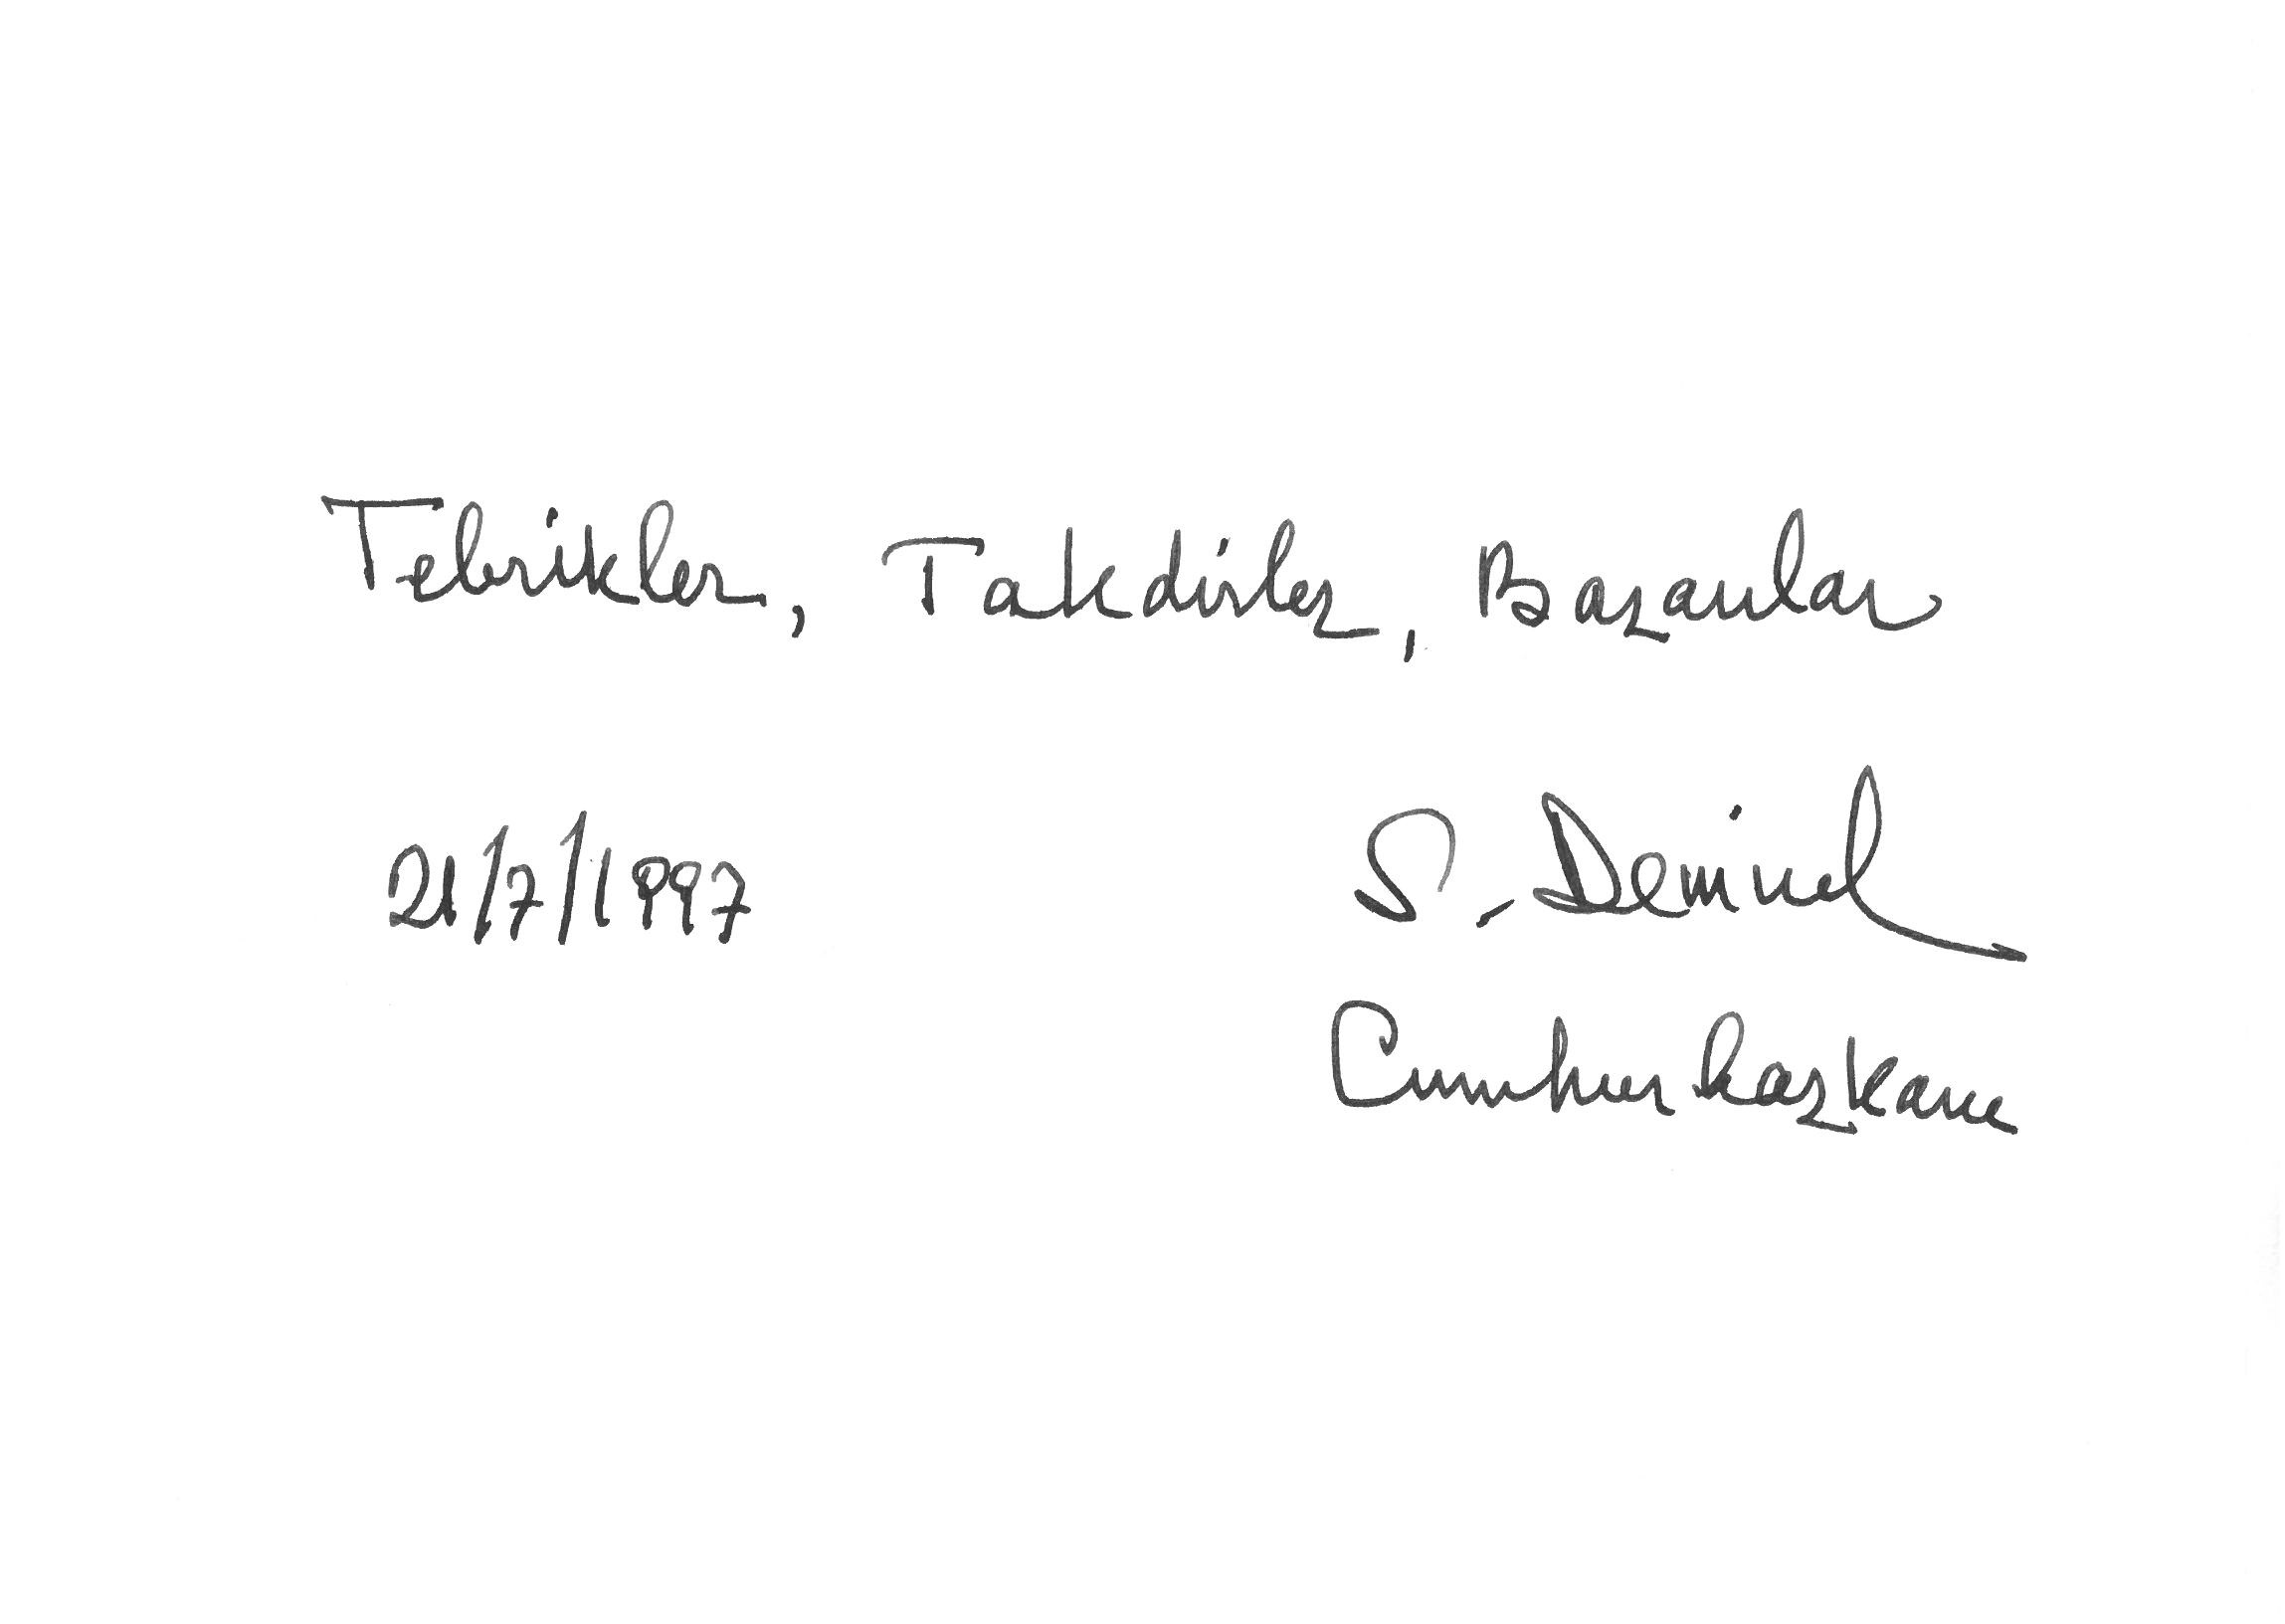 Tebrikler, Takdirler, Başarılar
21/7/1997 S. Demirel
Cumhurbaşkanı